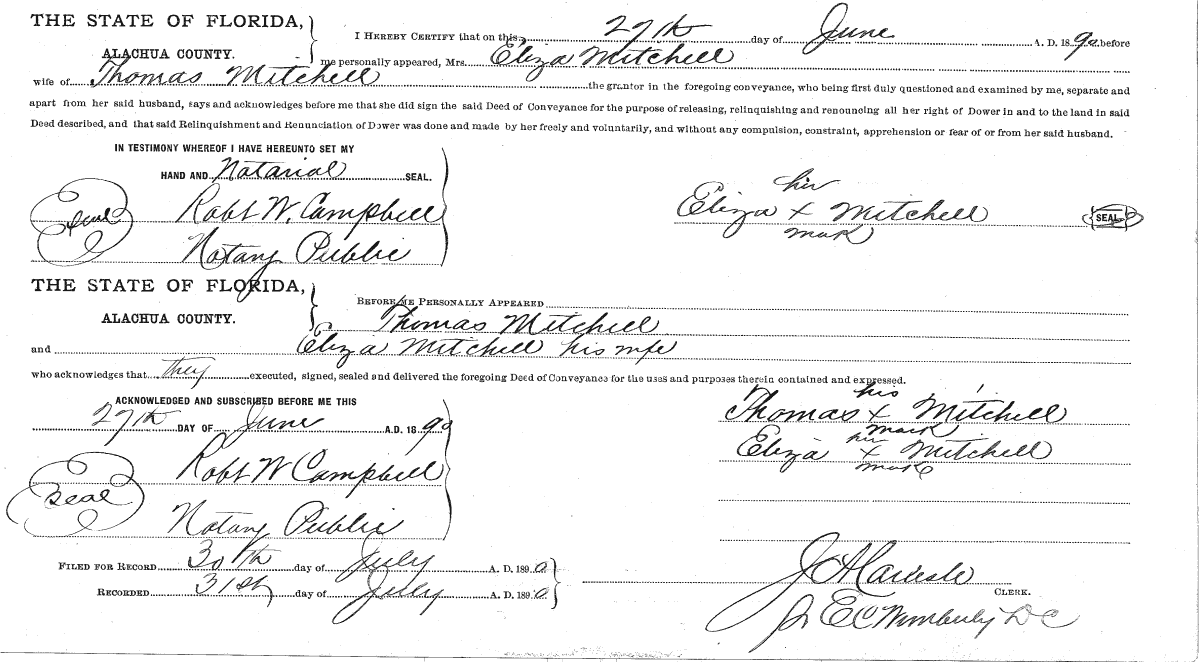 THE STATE OF FLORIDA,
ALACHUA COUNTY.
I HEREBY CERTIFY that on this 27th day of June A. D. 1890 before
me personally appeared, Mrs. Eliza Mitchell
wife of Thomas Mitchell the grantor in the foregoing conveyance, who being first duly questioned and examined by me, separate and
apart from her said husband, says and acknowledges before me that she did sign the said Deed of Conveyance for the purpose of releasing, relinquishing and renouncing all her right of Dower in and to the land in said
Deed described, and that said Relinquishment and Renunciation of Dower was done and made by her freely and voluntarily, and without any compulsion, constraint, apprehension or fear of or from her said husband.
IN TESTIMONY WHEREOF I HAVE HEREUNTO SET MY
HAND AND Notarial SEAL.
Seal
Robt W. Campbell
Notary Public
her
Eliza x Mitchell SEAL
mark
THE STATE OF FLORIDA,
ALACHUA COUNTY.
BEFORE ME PERSONALLY APPEARED
Thomas Mitchell
and Eliza Mitchell his wife
who acknowledges that they executed, signed, sealed and delivered the foregoing Deed of Conveyance for the uses and purposes therein contained and expressed.
ACKNOWLEDGED AND SUBSCRIBED BEFORE ME THIS
27th DAY OF June A.D. 1890
Seal
Robt W Campbell
Notary Public
his
Thomas x Mitchell
mark
her
Eliza x Mitchell
mark
FILED FOR RECORD 30th day of July A. D. 1890
RECORDED 31st day of July A. D. 1890
CLERK.
E C Wimberly DC